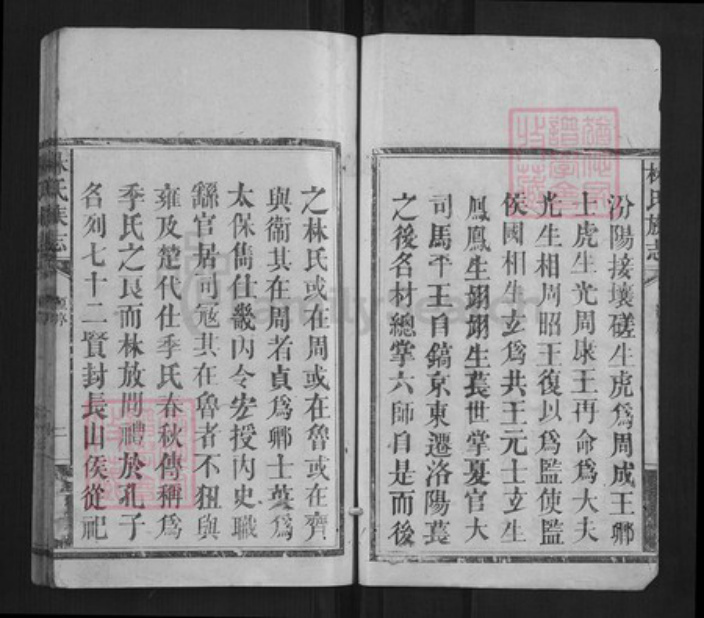 汾陽接壤磋生虎爲周成王卿
士虎生光周康王再命爲大夫
光生相周昭王復以爲監使監
侯國相生玄爲共王元士玄生
鳳鳳生翊翊生萇世掌夏官大
司馬平王自鎬京東遷洛陽萇
之後名材總掌六師自是而後
林氏族志
之林氏或在周或在魯或在齊
與衞其在周者貞爲卿士葉爲
太保雋仕畿內令宏授內史職
繇官居司寇其在魯者不狃與
雍及楚代仕季氏春秋傳稱爲
季氏之良而林放問禮於孔子
名列七十二賢封長山侯從祀
林氏族志